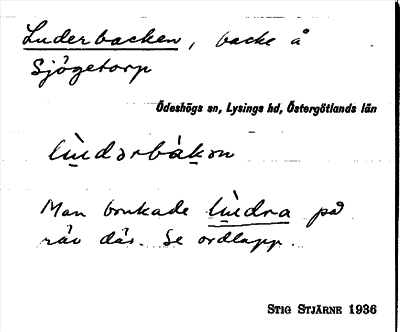 Luderbacken, backe å
Sjögetorp
Ödeshögs sn, Lysings hd, Östergötlands län
lùdərbàkən
Man brukade lùdra på
räv där. Se ordlapp.
STIG STJÄRNE 1936